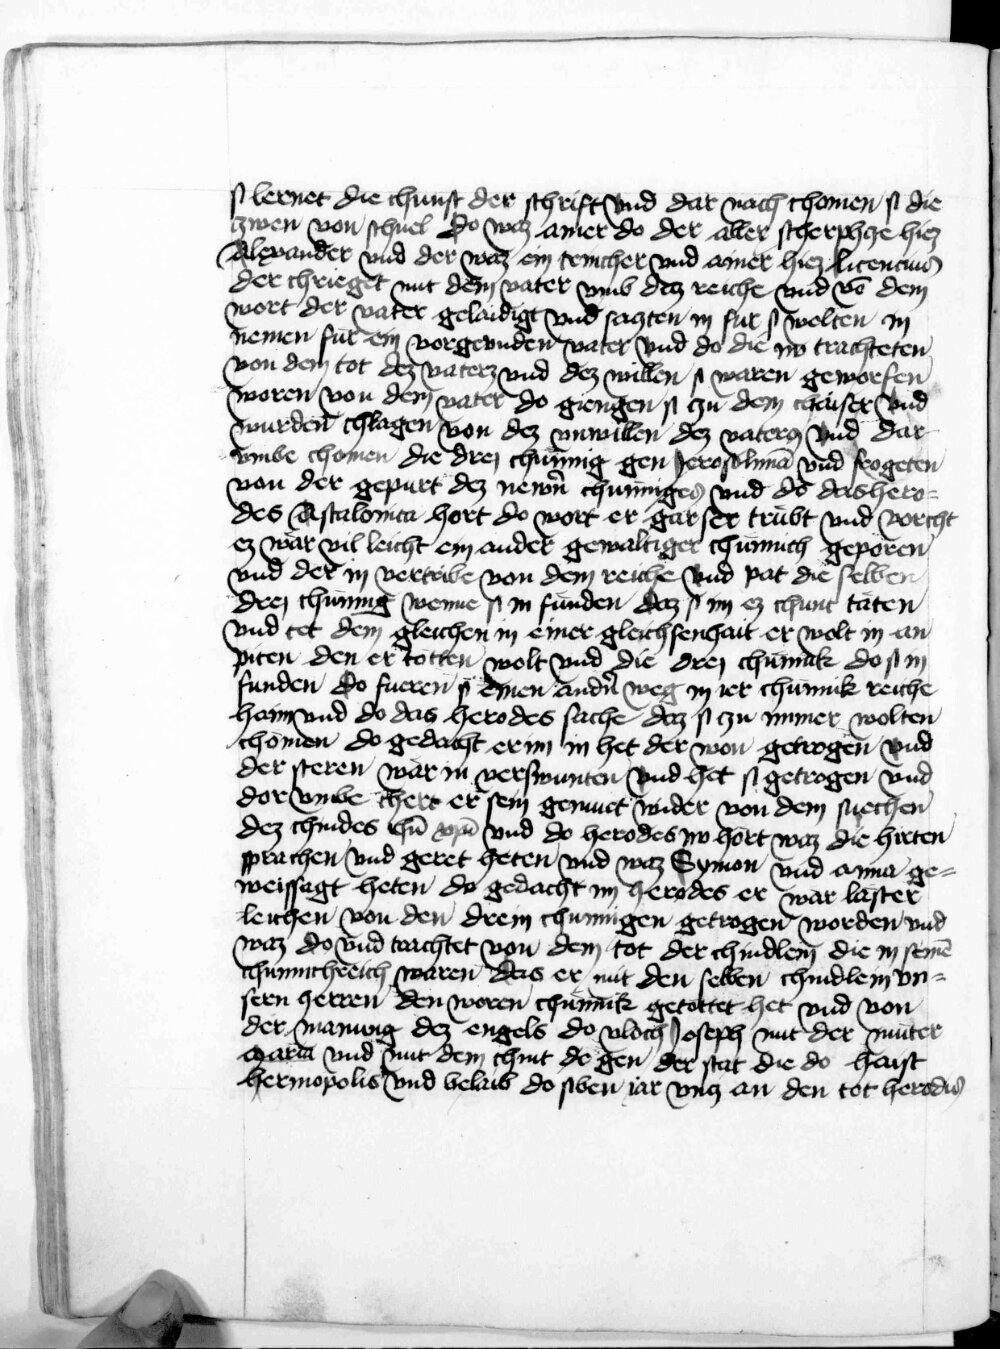 si lernet die chunst der schrift vnd dar nach chomen si die
zwen von schuel do waz ainer do der aller scherphge hiez
Alexander vnd der waz ein temcher vnd ainer hiez licencius
der chrieget mit dem vater vmb daz reiche vnd vō dem
wort der vater gelaidigt vnd sagten in fur si wolten in
nemen fur ein vorgewnden vater vnd do die nv trachteten
von dem tot dez vaterz vnd dez willen si waren geworfen
woren von dem vater do giengen si czu dem chaiser vnd
wurden chlagen von dez vnwillen dez vaters vnd dar
vmbe chomen die drej chünnig gen Jerosolimā vnd frogeten
von der gepurt dez newn̄ chunniges vnd do das hero=
des Astalonita hort do wort er gar ser trübt vnd vorcht
ez wär vil leicht ein ander gewaltiger chunnich geporen
vnd der in vertribe von dem reiche vnd pat die selben
drej chünnig wenne si in funden daz si im ez chunt täten
vnd tet dem gleichen in einer gleichsenhait er wolt in an
piten den er totten wolt vnd die drej chünnik do si in
funden do fueren si einen andn̄ weg in ier chunnik reiche
haim vnd do das herodes sache daz si czu immer wolten
chomen do gedacht er im in het der won getrogen vnd
der steren wär in verswunten vnd het si getrogen vnd
dor vmbe chert er sein gemuet wider von dem suechen
dez chindes ihū xpū vnd do herodes nv hort waz die hirten
sprachen vnd geret heten vnd waz Symon vnd anna ge=
weissagt heten do gedacht im herodes er wär laster
leichen von den drein chunnigen getrogen worden vnd
waz do vnd trachtet von dem tot der chindlein die in seinē
chunnichreich waren das er mit den selben chindlein vn=
sern herren den woren chünnik getottet het vnd von
der manung dez engels do vloch Joseph mit der muter
maria vnd mit dem chint do gen der stat die do haist
hermopolis vnd belaib do siben iar vncz an den tot herodis